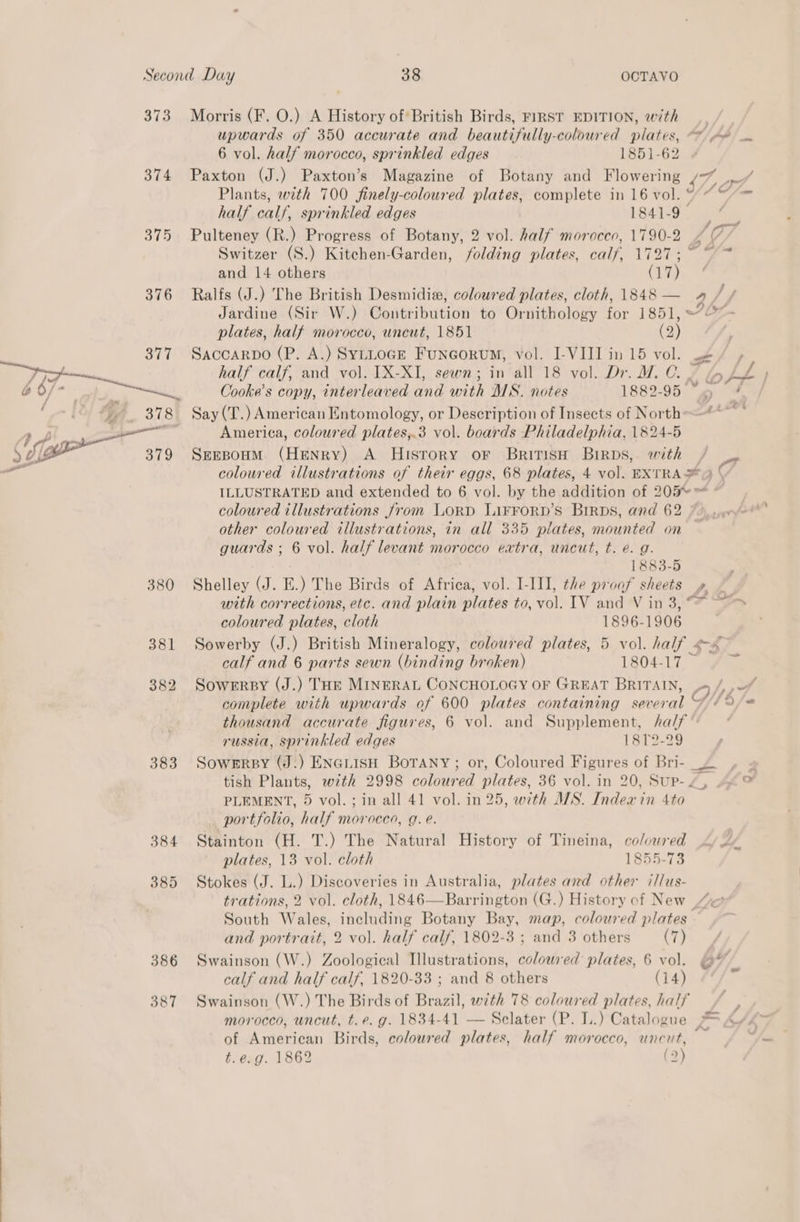 Second Day 38 OCTAVO
373 Morris (F. O.) A History of British Birds, FIRST EDITION, with
upwards of 350 accurate and beautifully-coloured plates,
6 vol. half morocco, sprinkled edges 1851-62
374 Paxton (J.) Paxton's Magazine of Botany and Flowering
Plants, with 700 finely-coloured plates, complete in 16 vol.
half calf, sprinkled edges 1841-9
375 Pulteney (R.) Progress of Botany, 2 vol. half morocco, 1790-2
Switzer (S.) Kitchen-Garden, folding plates, calf, 1727;
and 14 others (17)
376 Ralfs (J.) The British Desmidiæ, coloured plates, cloth, 1848 —
Jardine (Sir W.) Contribution to Ornithology for 1851,
plates, half morocco, uncut, 1851 (2)
377 SACCARDO (P. A.) SYLLOGE FUNGORUM, vol. I-VIII in 15 vol.
half calf, and vol. IX-XI, sewn; in all 18 vol. Dr. M. C.
Cooke's copy, interleaved and with MS. notes 1882-95
378 Say (T.) American Entomology, or Description of Insects of North
America, coloured plates, 3 vol. boards Philadelphia, 1824-5
379 SEEBOHM (HENRY) A HISTORY OF BRITISH BIRDS, with
coloured illustrations of their eggs, 68 plates, 4 vol. EXTRA
ILLUSTRATED and extended to 6 vol. by the addition of 205
coloured illustrations from LORD LILFORD'S BIRDS, and 62
other coloured illustrations, in all 335 plates, mounted on
guards; 6 vol. half levant morocco extra, uncut, t. e. g.
1883-5
380 Shelley (J. E.) The Birds of Africa, vol. I-III, the proof sheets
with corrections, etc. and plain plates to, vol. IV and V in 3,
coloured plates, cloth 1896-1906
381 Sowerby (J.) British Mineralogy, coloured plates, 5 vol. half
calf and 6 parts sewn (binding broken) 1804-17
382 SOWERBY (J.) THE MINERAL CONCHOLOGY OF GREAT BRITAIN,
complete with upwards of 600 plates containing several
thousand accurate figures, 6 vol. and Supplement, half
russia, sprinkled edges 1812-29
383 SOWERBY (J.) ENGLISH BOTANY; or, Coloured Figures of Bri-
tish Plants, with 2998 coloured plates, 36 vol. in 20, SUP-
PLEMENT, 5 vol.; in all 41 vol. in 25, with MS. Index in 4to
portfolio, half morocco, g. e.
384 Stainton (H. T.) The Natural History of Tineina, coloured
plates, 13 vol. cloth 1855-73
385 Stokes (J. L.) Discoveries in Australia, plates and other illus-
trations, 2 vol. cloth, 1846—Barrington (G.) History of New
South Wales, including Botany Bay, map, coloured plates
and portrait, 2 vol. half calf, 1802-3; and 3 others (7)
386 Swainson (W.) Zoological Illustrations, coloured plates, 6 vol.
calf and half calf, 1820-33; and 8 others (14)
387 Swainson (W.) The Birds of Brazil, with 78 coloured plates, half
morocco, uncut, t. e. g. 1834-41 — Sclater (P. L.) Catalogue
of American Birds, coloured plates, half morocco, uncut,
t. e. g. 1862 (2)